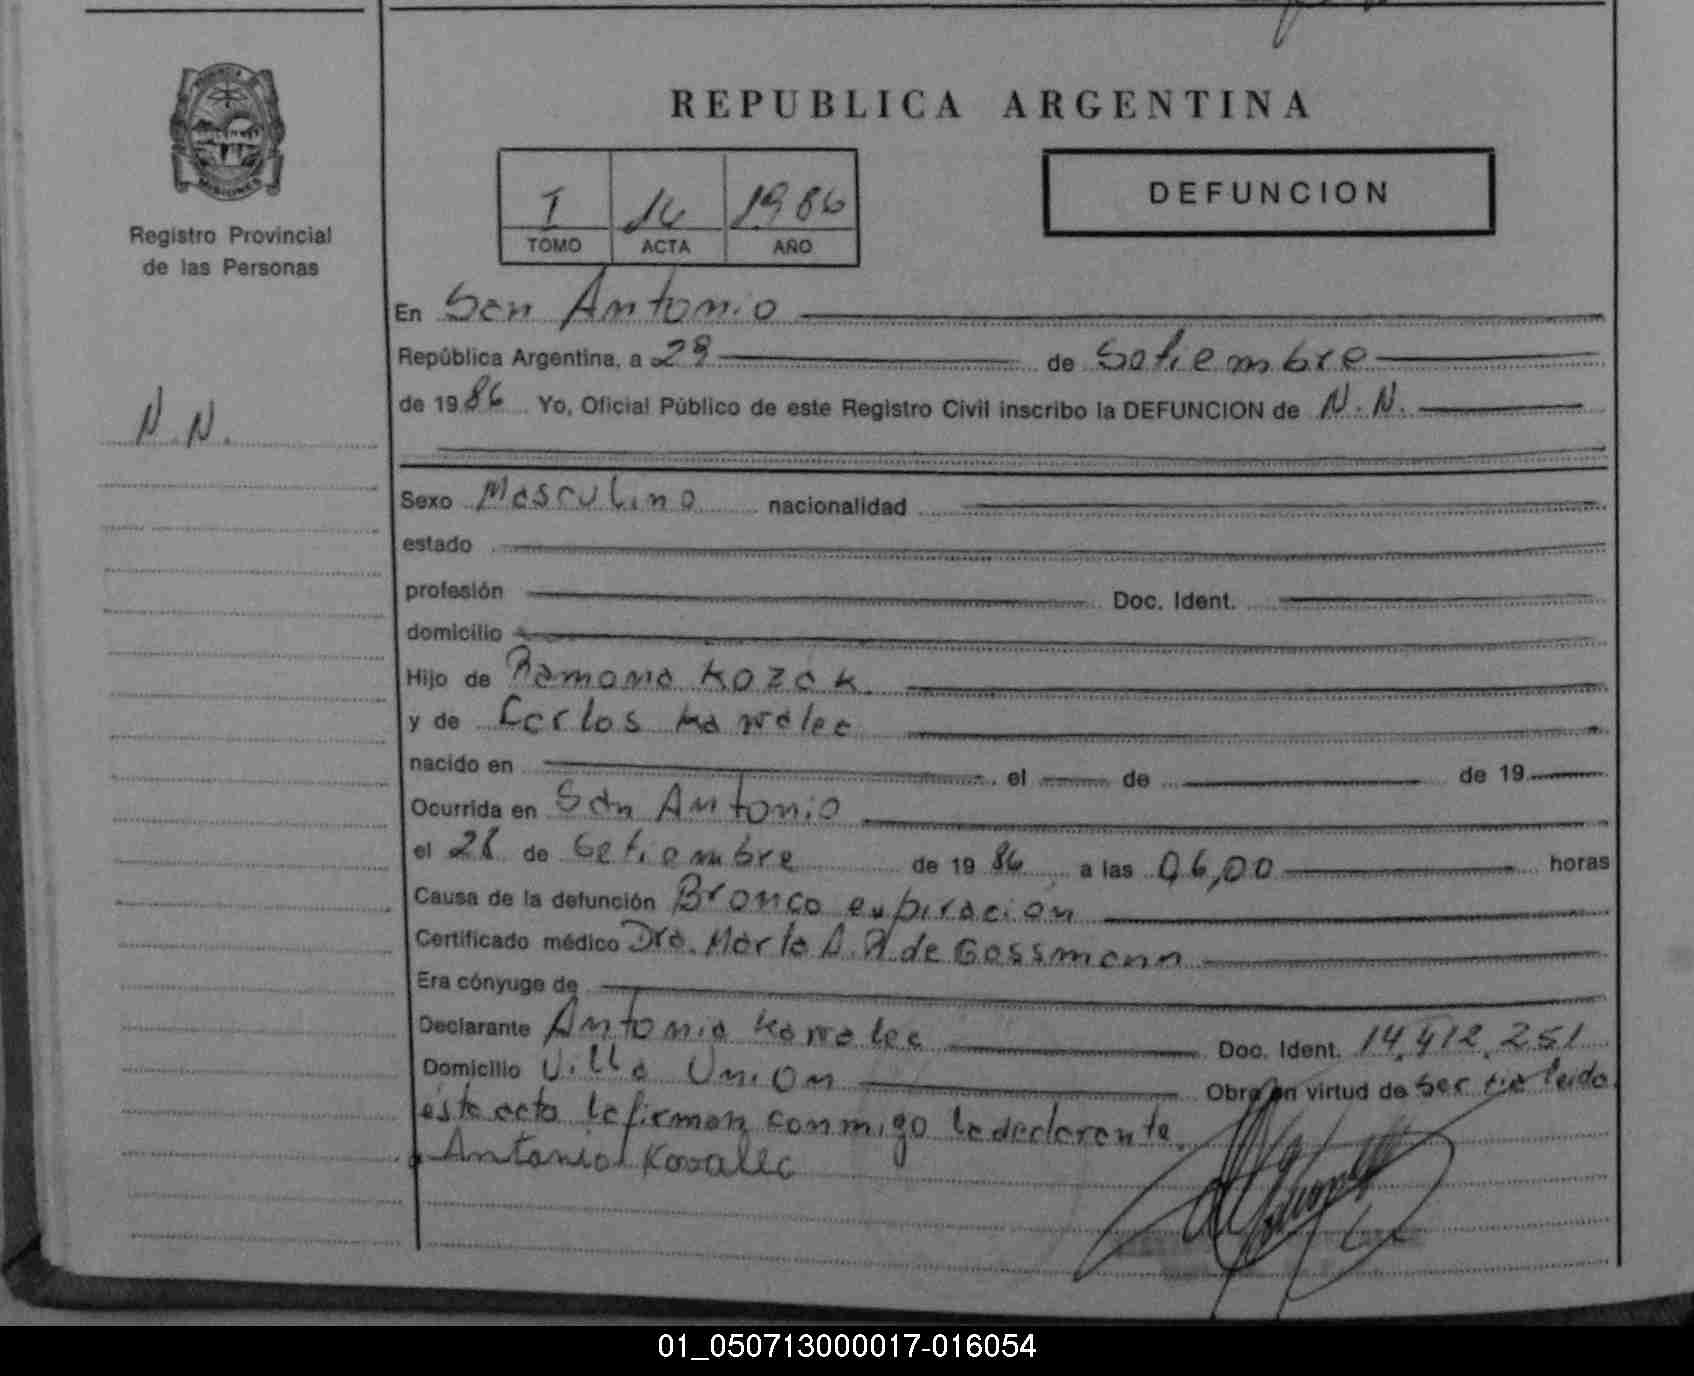 REPUBLICA ARGENTINA
PROVINCIA DE
MISIONES
Registro Provincial
de las Personas
I 14 1986
TOMO ACTA AÑO
DEFUNCION
En San Antonio
República Argentina, a 29 de Setiembre
de 1986 Yo, Oficial Público de este Registro Civil inscribo la DEFUNCION de N.N.
N.N.
Sexo Masculino nacionalidad
estado
profesión Doc. Ident.
domicilio
Hijo de Ramona Kozak.
y de Carlos Kawalec
nacido en el de de 19
Ocurrida en San Antonio
el 28 de Setiembre de 1986 a las 06,00 horas
Causa de la defunción Bronco
Certificado médico Dra. Marta A. R. de Gossmann
Era cónyuge de
Declarante Antonio Kawalec Doc. Ident. 14.412.251
Domicilio Villa Union Obra en virtud de Ser leida
este acta la firman conmigo la declarante.
Antonio Kovalec
01_050713000017-016054